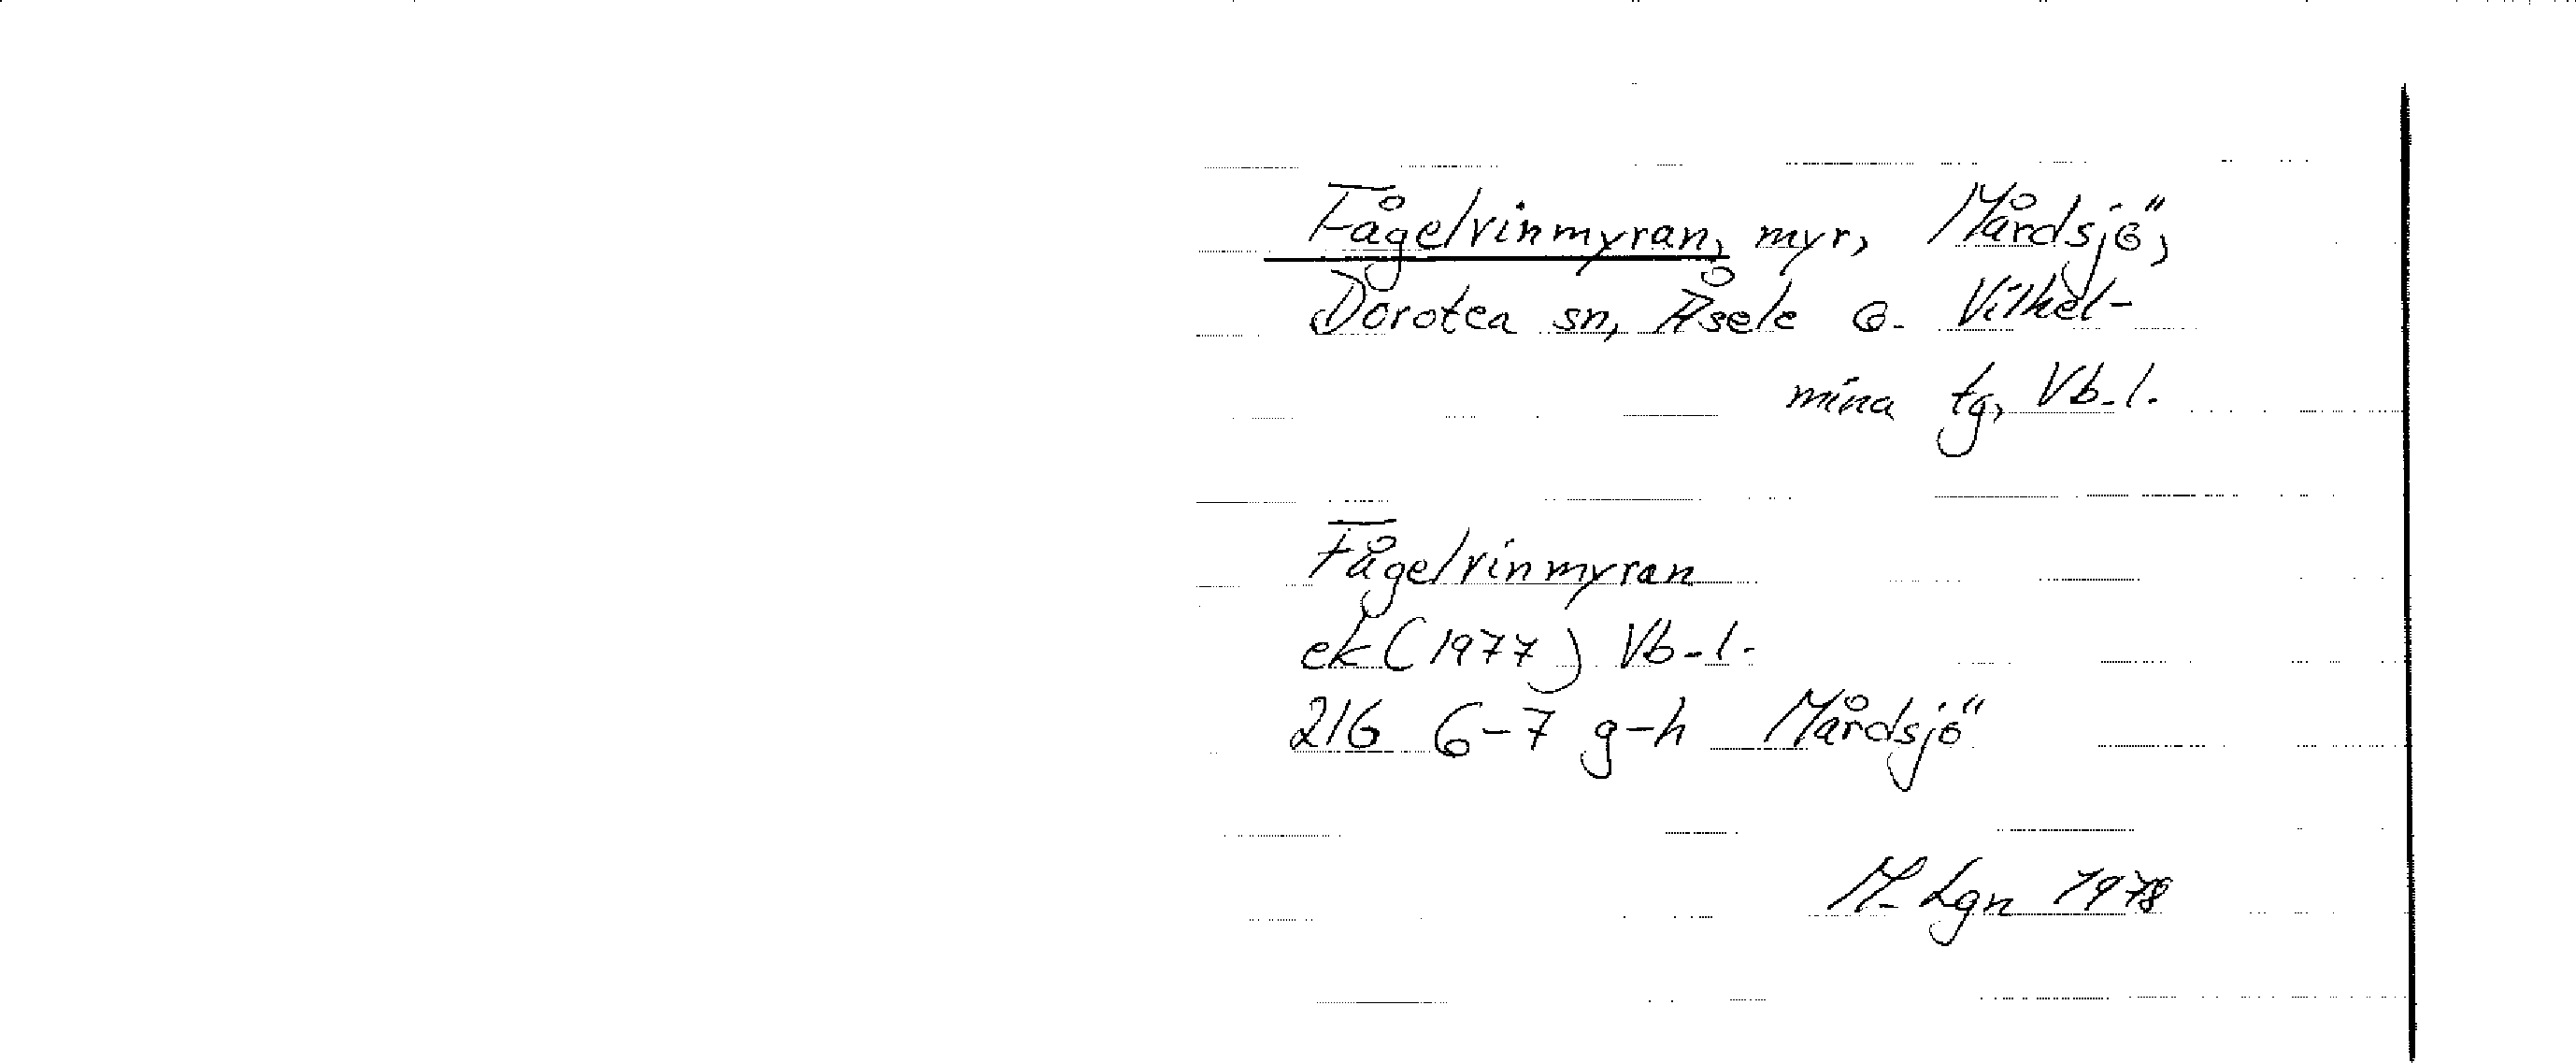 Fågelvinmyran, myr, Mårdsjö,
Dorotea sn, Åsele o. Vilhel-
mina tg, Vb.l.
Fågelvinmyran
ek (1977) Vb.l.
21G 6-7 g-h Mårdsjö
M. Lgn 1978